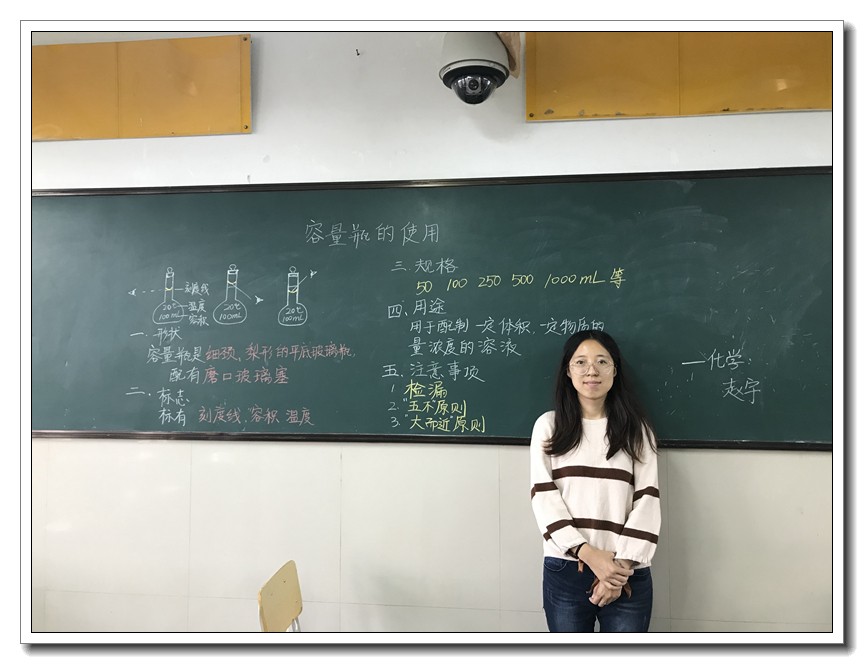 容量瓶的使用
刻度线
温度
容积
20℃
100mL
20℃
100mL
20℃
100mL
一. 形状
容量瓶是细颈, 梨形的平底玻璃瓶,
配有磨口玻璃塞
二. 标志
标有 刻度线, 容积 温度
三. 规格
50 100 250 500 1000mL 等
四. 用途
用于配制一定体积, 一定物质的
量浓度的溶液
五. 注意事项
1. 检漏
2. "五不"原则
3. "大而近"原则
—化学:
赵宇